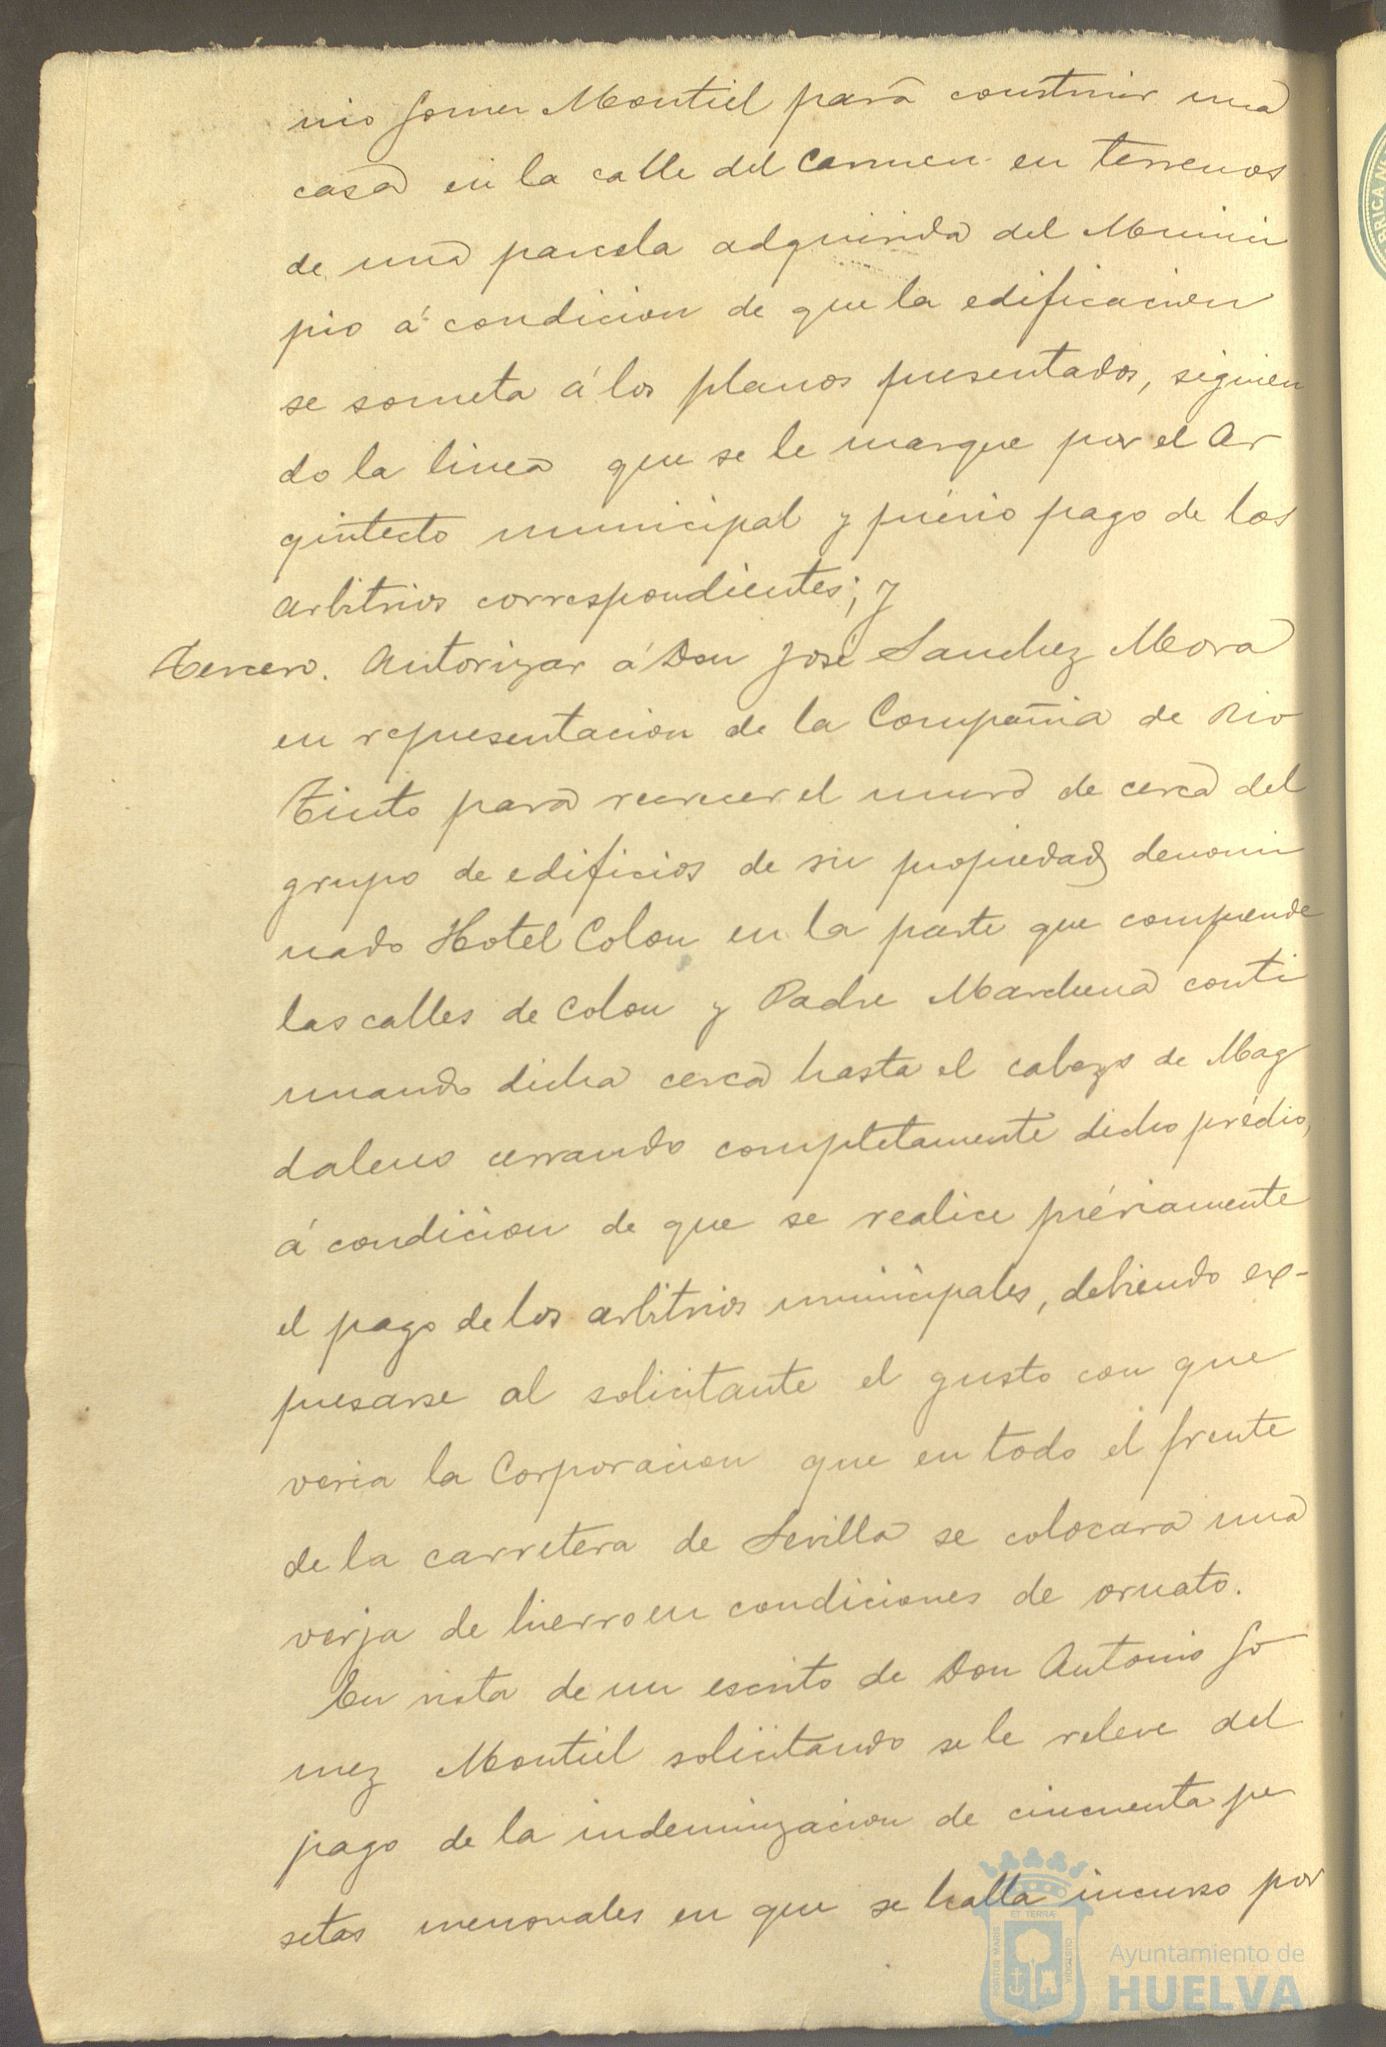 nio Gomez Montiel para construir una
casa en la calle del Carmen en terrenos
de una parcela adquirida del Munici
pio á condicion de que la edificacion
se someta á los planos presentados, siguien
do la linea que se le marque por el Ar
quitecto municipal y prévio pago de los
arbitrios correspondientes; y
Tercero. Autorizar á Don José Sanchez Mora
en representacion de la Compañia de Rio
Tinto para recrecer el muro de cerca del
grupo de edificios de su propiedad denomi
nado Hotel Colon en la parte que comprende
las calles de Colon y Padre Marchena conti
nuando dicha cerca hasta el cabezo de Mag
daleno cerrando completamente dicho prédio,
á condicion de que se realice préviamente
el pago de los arbitrios municipales, debiendo ex-
presarse al solicitante el gusto con que
veria la Corporacion que en todo el frente
de la carretera de Sevilla se colocara una
verja de hierro en condiciones de ornato.
En vista de un escrito de Don Antonio Go
mez Montiel solicitando se le releve del
pago de la indemnizacion de cincuenta pe
setas mensuales en que se halla incurso por
PORTUS MARIS
ET TERRÆ
CUSTODIA
Ayuntamiento de
HUELVA
BRICA N